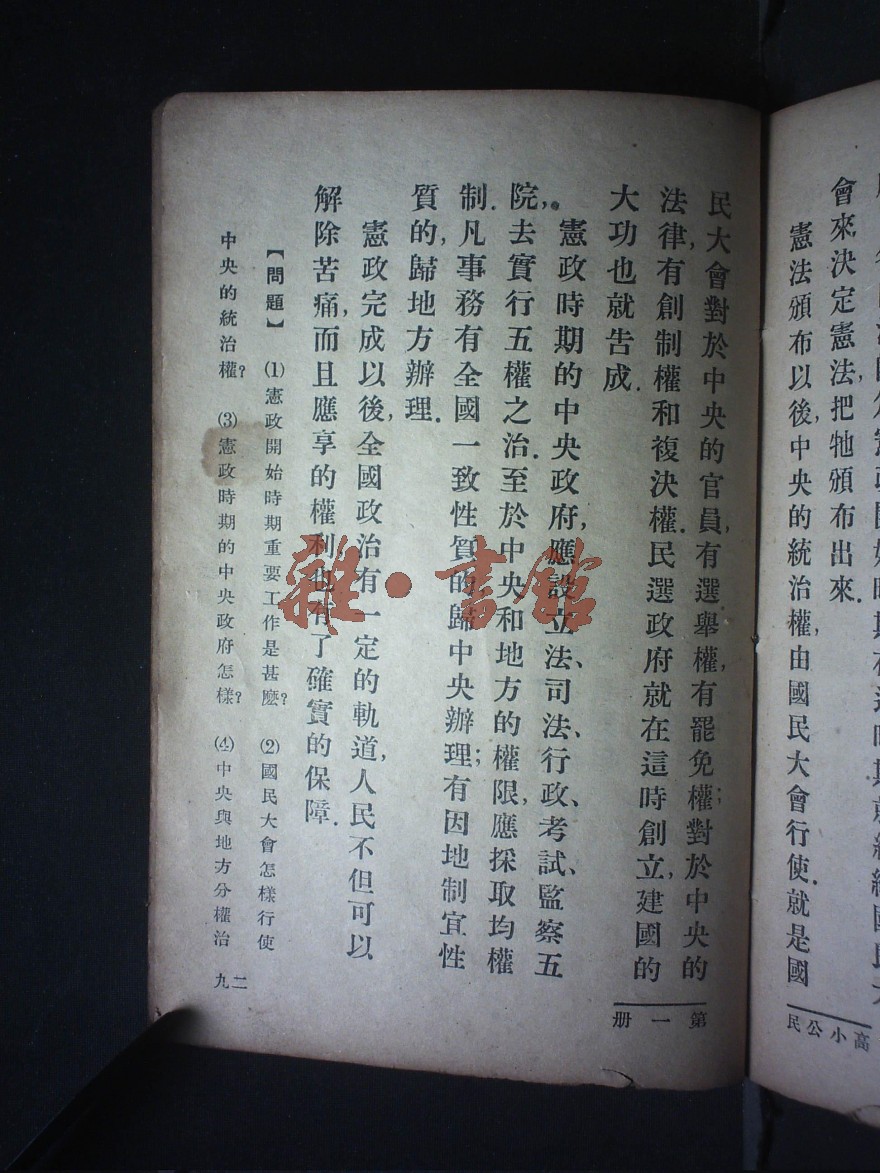 會來決定憲法,把牠頒布出來.
憲法頒布以後,中央的統治權,由國民大會行使.就是國
高小公民
民大會對於中央的官員,有選舉權,有罷免權;對於中央的
法律,有創制權和複決權.民選政府就在這時創立,建國的
大功也就告成.
憲政時期的中央政府,應設立法、司法、行政、考試、監察五
院,去實行五權之治.至於中央和地方的權限,應採取均權
制.凡事務有全國一致性質的,歸中央辦理;有因地制宜性
質的,歸地方辦理.
憲政完成以後,全國政治有一定的軌道,人民不但可以
解除苦痛,而且應享的權利也有了確實的保障.
【問題】 ⑴憲政開始時期重要工作是甚麼? ⑵國民大會怎樣行使
中央的統治權? ⑶憲政時期的中央政府怎樣? ⑷中央與地方分權治
第一册
二九
雜·書館